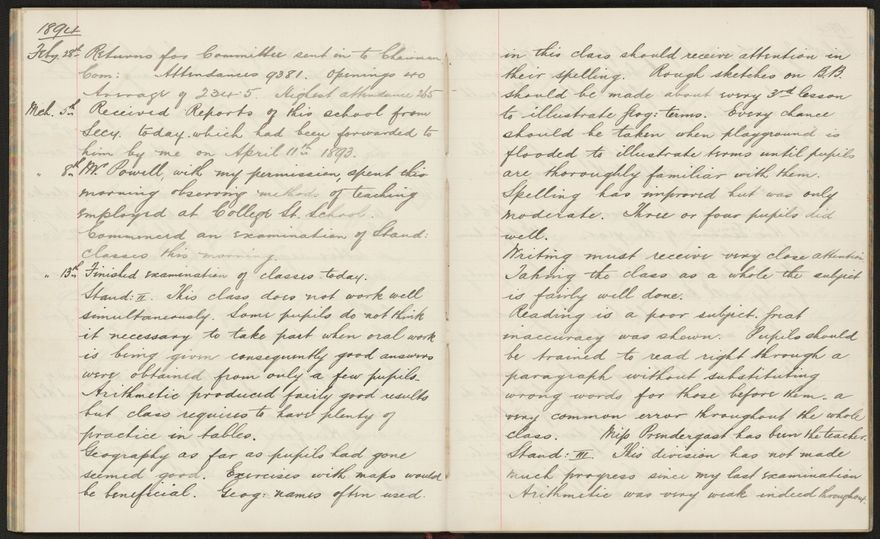 1894
Feby. 28th Returns for Committee sent in to Chairman
Com: Attendances 9381. Openings 40
Average 234.5. Highest attendance 265
Mch. 5th Received Reports of this school from
Secy. today which had been forwarded to
him by me on April 11th 1893.
" 8th Mr Powell, with my permission, spent this
morning observing methods of teaching
employed at College St. School.
Commenced an examination of Stand:
classes this morning.
" 13th Finished examination of classes today.
Stand: II. This class does not work well
simultaneously. Some pupils do not think
it necessary to take part when oral work
is being given consequently good answers
were obtained from only a few pupils.
Arithmetic produced fairly good results
but class requires to have plenty of
practice in tables.
Geography as far as pupils had gone
seemed good. Exercises with maps would
be beneficial. Geog: names often used
in this class should receive attention in
their spelling. Rough sketches on B.B.
should be made about every 3rd lesson
to illustrate Geog: terms. Every chance
should be taken when playground is
flooded to illustrate terms until pupils
are thoroughly familiar with them.
Spelling has improved but was only
moderate. Three or four pupils did
well.
Writing must receive very close attention
Taking the class as a whole the subject
is fairly well done.
Reading is a poor subject. Great
inaccuracy was shewn. Pupils should
be trained to read right through a
paragraph without substituting
wrong words for those before them - a
very common error throughout the whole
class. Miss Prendergast has been the teacher.
Stand: III. This division has not made
much progress since my last examination
Arithmetic was very weak indeed throughout.